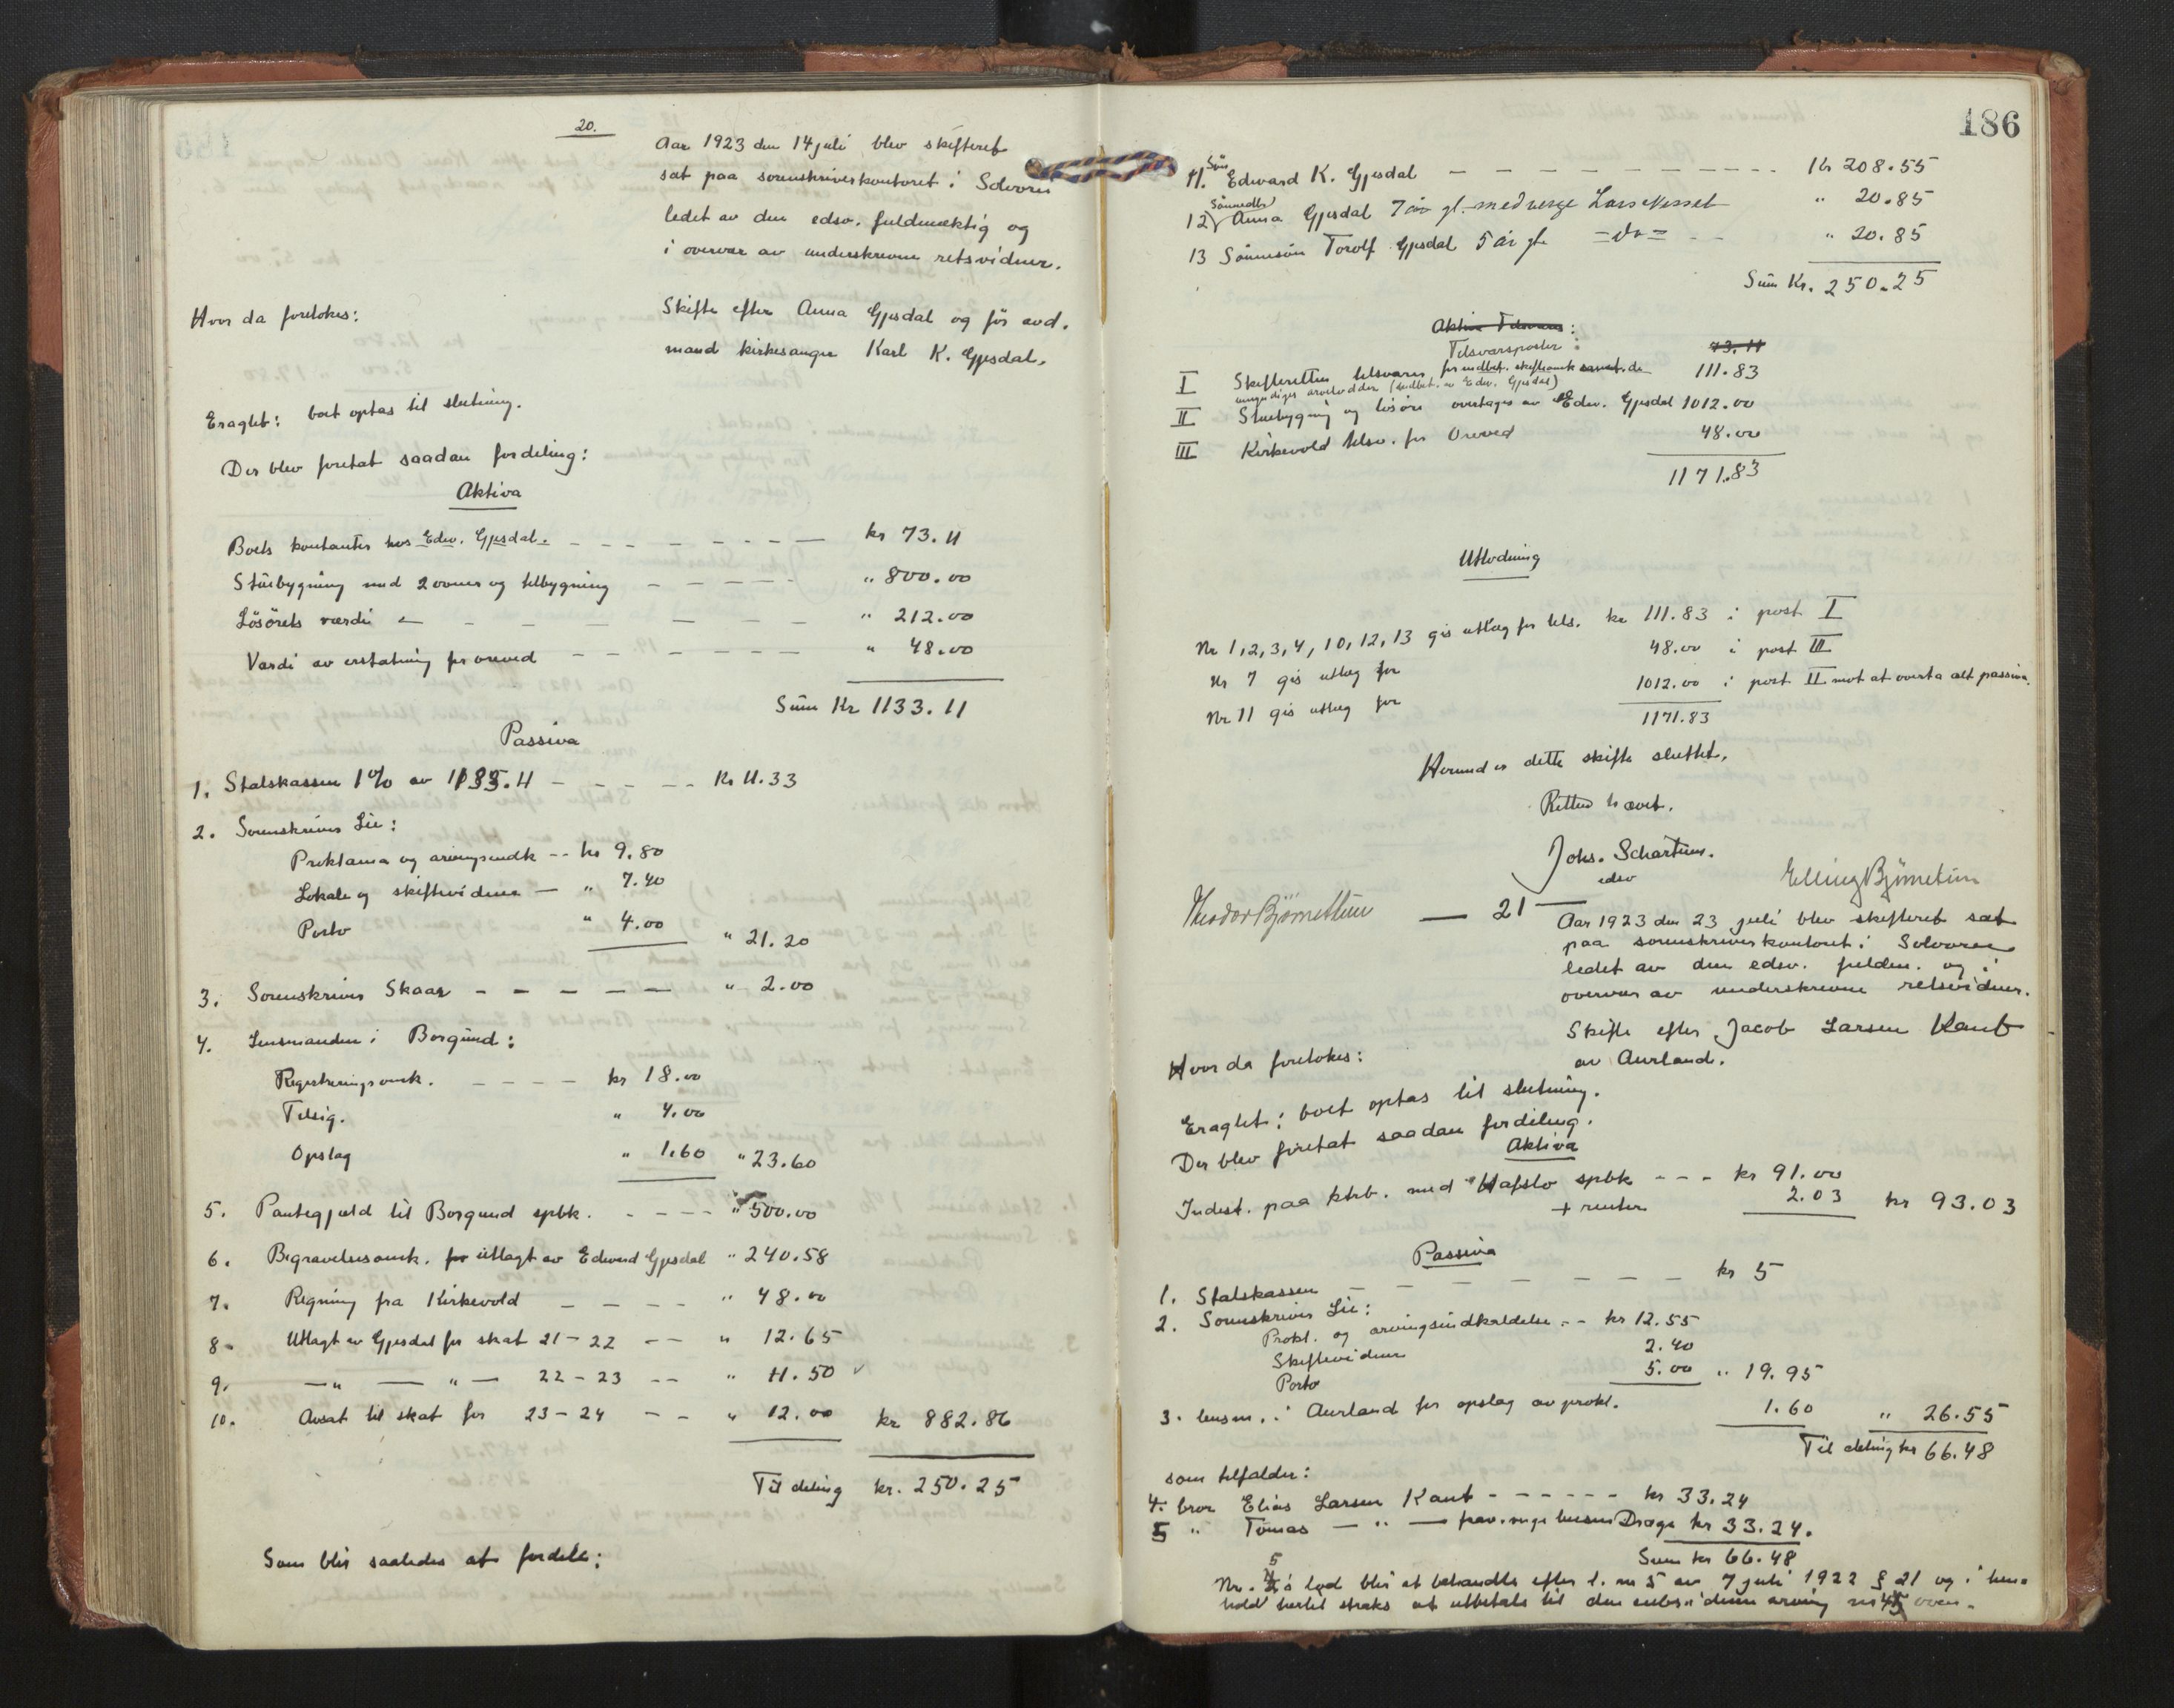 20.
Aar 1923 den 14 juli blev skifteret
sat paa sorenskriverkontoret i Solvorn
ledet av den edsv. fuldmæktig og
i overvær av underskrevne retsvidner.
Hvor da foretokes:
Skifte efter Anna Gjesdal og før avd.
mand kirkesanger Karl K. Gjesdal.
Eragtet: boet optas til slutning.
Der blev foretat saadan fordeling:
Aktiva
Boets kontanter hos Edw. Gjesdal. - - - - kr 73.11
Stuebygning med 2 ovner og tilbygning - - - - " 800.00
Løsørets værdi - - - - " 212.00
Værdi av erstatning for oreved - - - - " 48.00
Sum Kr 1133.11
Passiva
1. Statskassen 1% av 1133.11 - - - - Kr 11.33
2. Sorenskriver Lie:
Proklama og arvingsindk -- kr 9.80
Lokale og skiftevidner — " 7.40
Porto " 4.00 " 21.20
3. Sorenskriver Skaar - - - - " 2.00
4. Lensmanden i Borgund:
Registreringsomk. - - - - kr 18.00
Tilsig. " 4.00
Opslag " 1.60 " 23.60
5. Pantegjæld til Borgund spbk. - - - - " 500.00
6. Begravelsesomk. for utlagt av Edward Gjesdal " 240.58
7. Regning fra Kirkevold - - - - " 48.00
8. Utlagt av Gjesdal for skat 21-22 -- " 12.65
9. —"— —"— 22-23 -- " 11.50
10. Avsat til skat for 23-24 -- " 12.00 kr 882.86
Til deling kr. 250.25
Som blir saaledes at fordele:
186
11. Søn Edward K. Gjesdal - - - - Kr 208.55
12) Sønnedtr Anna Gjesdal 7 år gl. med verge Lars Nesset " 20.85
13 Sønnesøn Torolf Gjesdal 5 år gl. =do= - - " 20.85
Sum Kr. 250.25
Aktiva Tilsvars:
Tilsvarsposter: 73.11
I Skifteretten tilsvarer for indbet. skifteomk samt de 111.83
umyndiges arvelodder (indbet. av Edw. Gjesdal)
II Stuebygning og løsøre overtages av Edw. Gjesdal 1012.00
III Kirkevold tilsv. for Oreved 48.00
1171.83
Utlodning
Nr 1,2,3,4,10,12,13 gis utlæg for tils. kr 111.83 i post I
Nr 7 gis utlæg for 48.00 i post III
Nr 11 gis utlæg for 1012.00 i post II mot at overta alt passiva.
1171.83
Hermed er dette skifte sluttet.
Retten hævet.
Johs. Schartum.
edsv
Elling Bjørnetun
Theodor Bjørnetun
— 21 —
Aar 1923 den 23 juli blev skifteret sat
paa sorenskriverkontoret i Solvorn
ledet av den edsv. fuldm. og i
overvær av underskrevne retsvidner.
Hvor da foretokes:
Skifte efter Jacob Larsen Kant
av Aurland.
Eragtet: boet optas til slutning.
Der blev foretat saadan fordeling.
Aktiva
Indest. paa ktrb. med Hafslo spbk - - - kr 91.00
+ renter 2.03 kr 93.03
Passiva
1. Statskassen - - - - kr 5
2. Sorenskriver Lie:
Prokl. og arvingsindkaldelse -- kr 12.55
Skiftevidner 2.40
Porto 5.00 " 19.95
3. lensm. i Aurland for opslag av prokl. 1.60 " 26.55
Til deling kr 66.48
som tilfalder:
4. bror Elias Larsen Kant - - - - kr 33.24
5 " Tomas — " — frav. verge lensm Drægo kr 33.24.
Sum kr 66.48
Nr. 5's lod blir at behandle efter l. nr 5 av 7 juli 1922 § 21 og i hen-
hold hertil straks at utbetale til den subsidiære arving nr 4 oven.